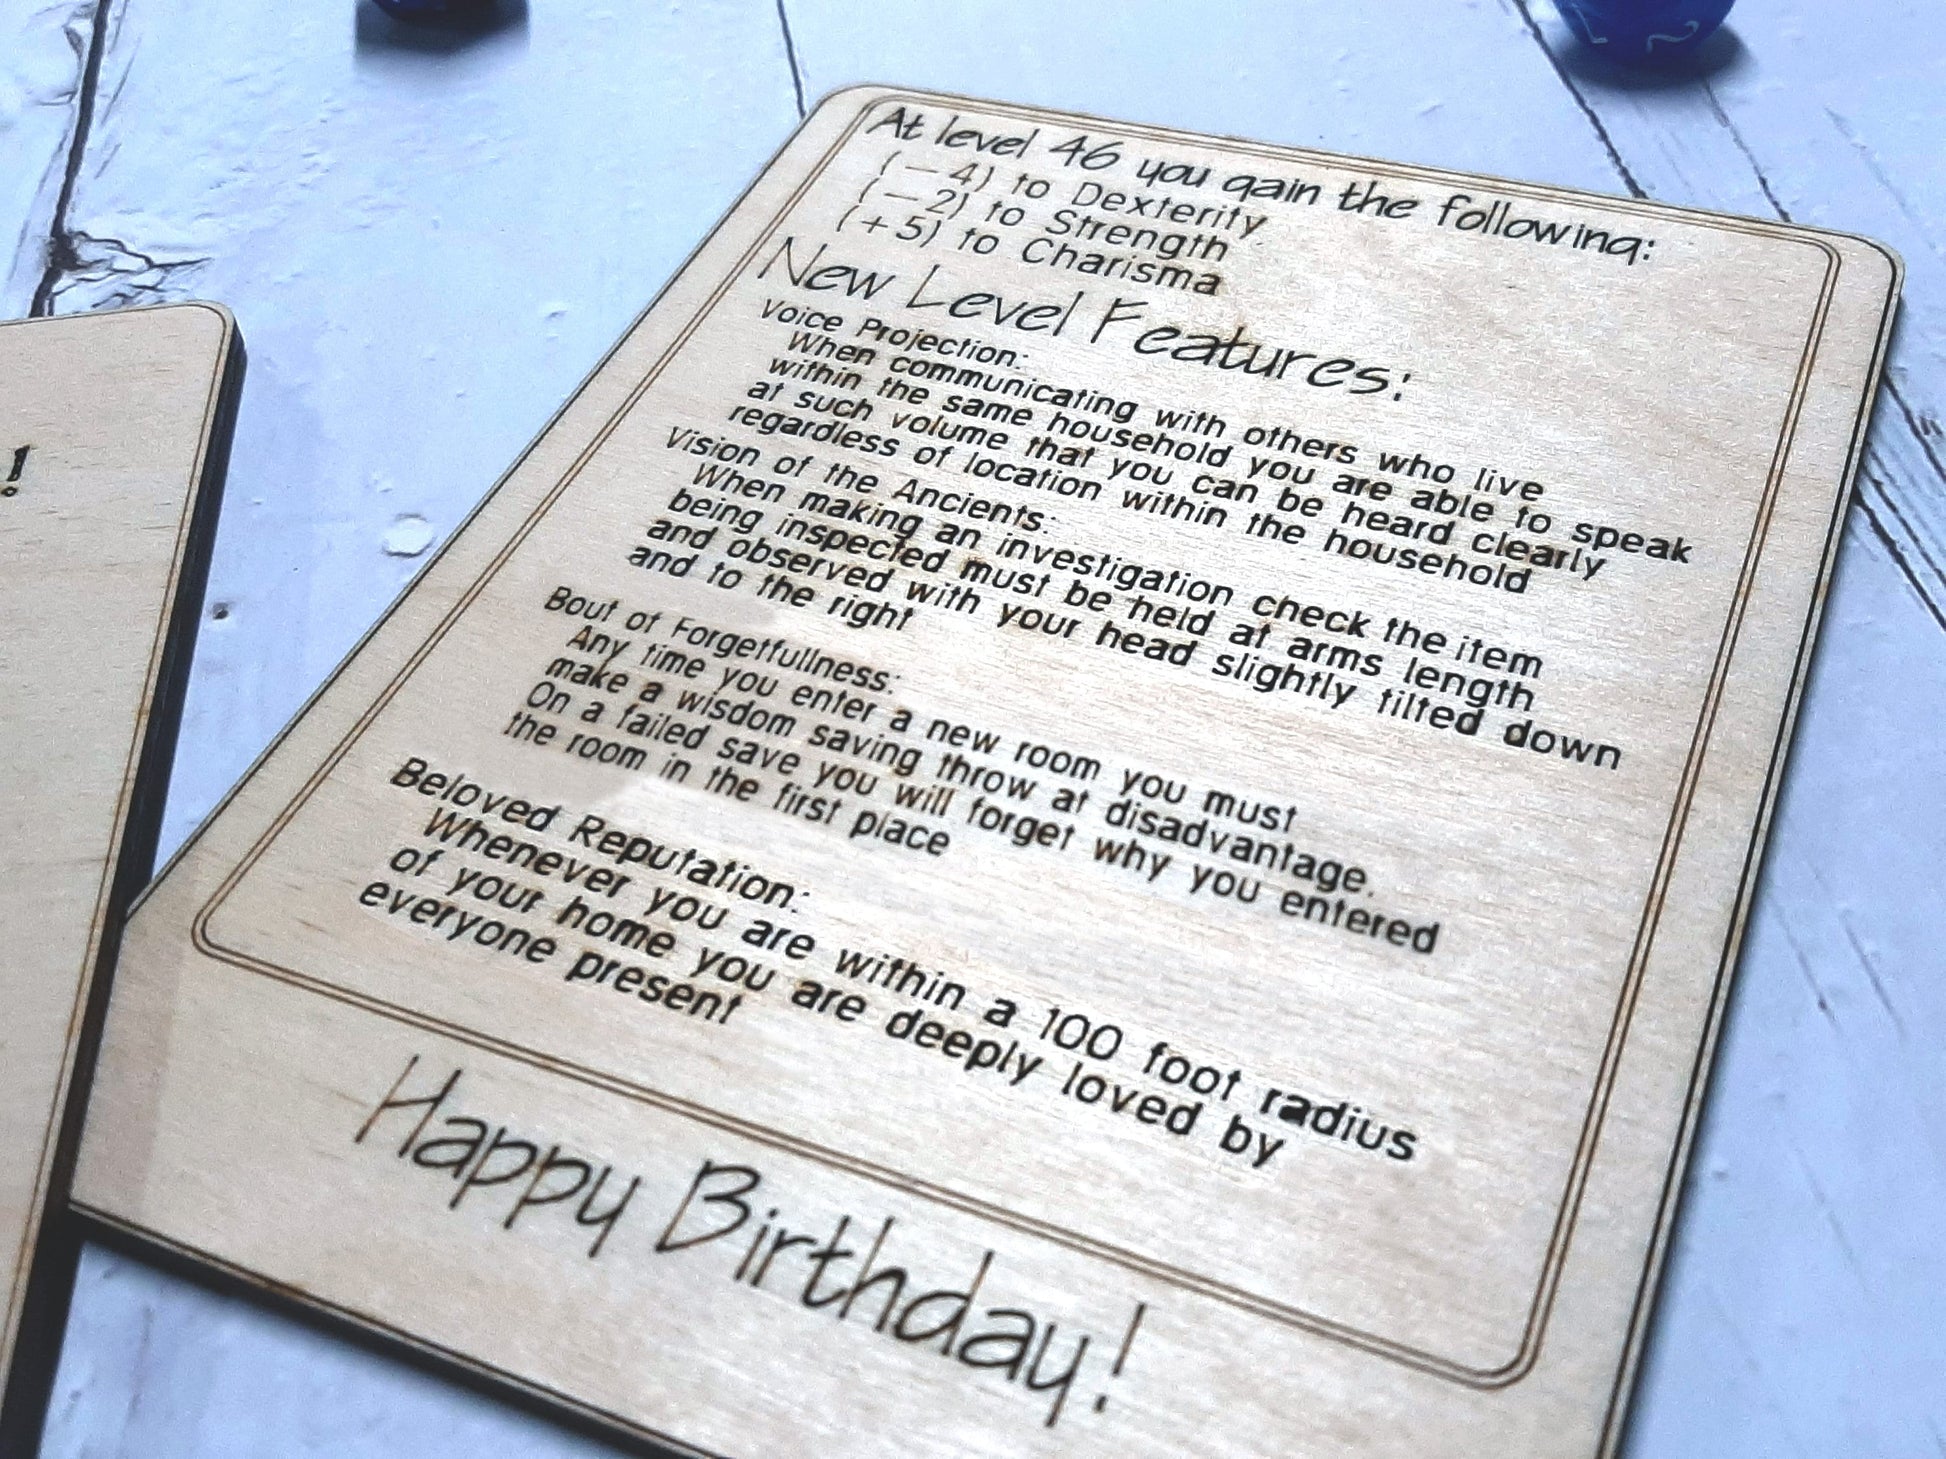 At level 46 you gain the following:
(-4) to Dexterity
(-2) to Strength
(+5) to Charisma
New Level Features:
Voice Projection:
When communicating with others who live
within the same household you are able to speak
at such volume that you can be heard clearly
regardless of location within the household
Vision of the Ancients:
When making an investigation check the item
being inspected must be held at arms length
and observed with your head slightly tilted down
and to the right
Bout of Forgetfullness:
Any time you enter a new room you must
make a wisdom saving throw at disadvantage.
On a failed save you will forget why you entered
the room in the first place
Beloved Reputation:
Whenever you are within a 100 foot radius
of your home you are deeply loved by
everyone present
Happy Birthday!
!